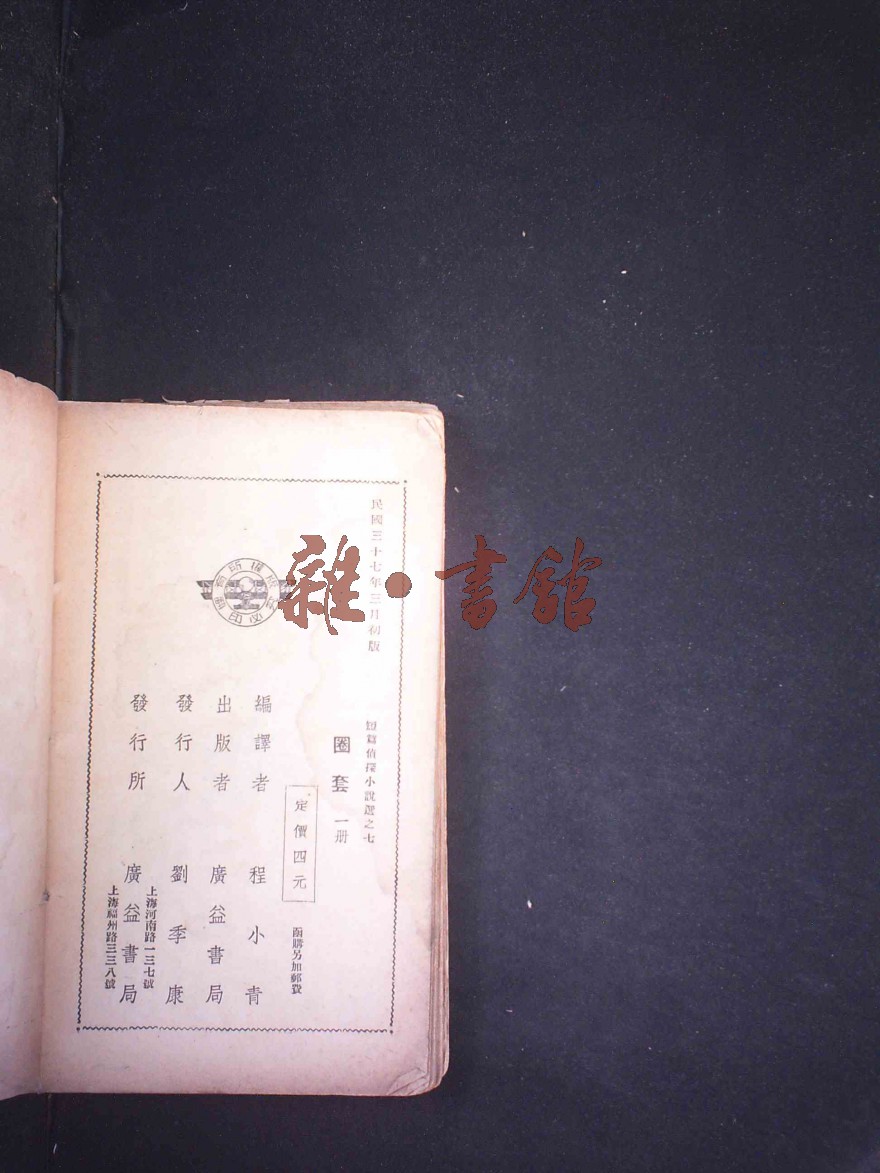 民國三十七年三月初版
短篇偵探小說選之七
圈套 一册
定價四元
函購另加郵費
編譯者 程小青
出版者 廣益書局
發行人 劉季康
發行所 廣益書局
上海河南路一三七號
上海福州路三三八號
版權所有
翻印必究
雜·書館